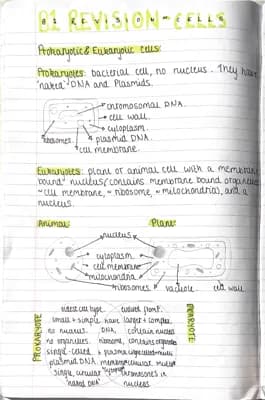 B1 REVISION - CELLS
Prokaryotic & Eukaryotic cells:
Prokaryotes: bacterial cell, no nucleus. They have
'naked' DNA and Plasmids.
chromosomal DNA.
cell wall.
cytoplasm.
ribosomes.
plasmid DNA.
cell membrane.
Eukaryotes: plant or animal cell with a membrane
bound nucleus, contains membrane bound organelles
cell membrane, ribosome, mitochondria, and a
nucleus.
Animal Plant
nucleus
cytoplasm
cell membrane
mitochondria
ribosomes vacuole cell wall
PROKARYOTE
oldest cell type
small + simple
no nucleus.
no organelles.
single-celled
plasmid DNA.
single, circular
'naked DNA'
have
DNA,
ribosome,
evolved from P.
larger + complex
contain nucleus
contains organelles
nucleus